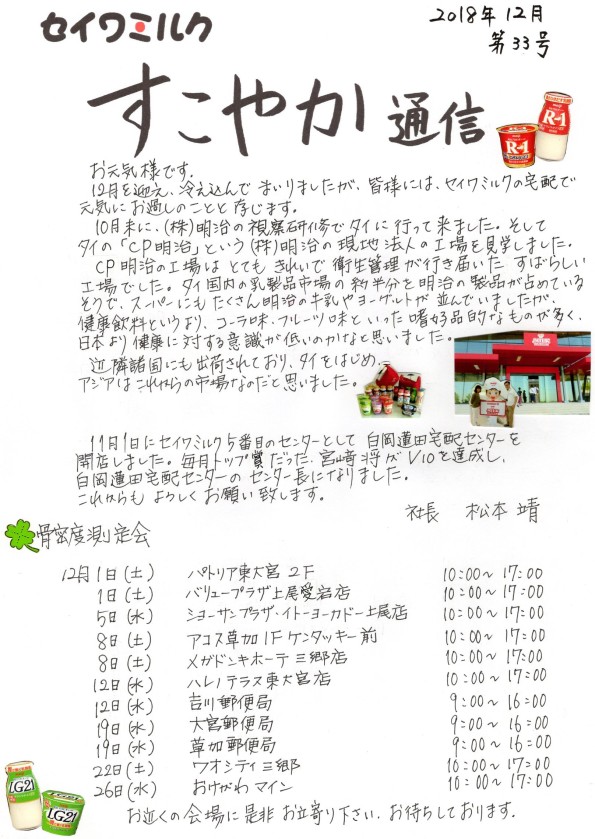 セイワミルク
2018年12月
第33号
すこやか通信
R-1
R-1
お元気様です。
12月を迎え、冷え込んでまいりましたが、皆様には、セイワミルクの宅配で
元気にお過しのことと存じます。
10月末に、(株)明治の視察研修でタイに行って来ました。そして
タイの「CP明治」という(株)明治の現地法人の工場を見学しました。
CP明治の工場はとてもきれいで衛生管理が行き届いたすばらしい
工場でした。タイ国内の乳製品市場の約半分を明治の製品が占めている
そうで、スーパーにもたくさん明治の牛乳やヨーグルトが並んでいましたが、
健康飲料というより、コーラ味・フルーツ味といった嗜好品的なものが多く、
日本より健康に対する意識が低いのかなと思いました。
近隣諸国にも出荷されており、タイをはじめ、
アジアはこれからの市場なのだと思いました。
11月1日にセイワミルク5番目のセンターとして白岡蓮田宅配センターを
開店しました。毎月トップ賞だった、宮崎将がV10を達成し、
白岡蓮田宅配センターのセンター長になりました。
これからもよろしくお願い致します。
社長 松本靖
骨密度測定会
12月1日(土) パトリア東大宮2F 10:00~17:00
1日(土) バリュープラザ上尾愛宕店 10:00~17:00
5日(水) ショーサンプラザ・イトーヨーカドー上尾店 10:00~17:00
8日(土) アコス草加1Fケンタッキー前 10:00~17:00
8日(土) メガドンキホーテ三郷店 10:00~17:00
12日(水) ハレノテラス東大宮店 10:00~17:00
12日(水) 吉川郵便局 9:00~16:00
19日(水) 大宮郵便局 9:00~16:00
19日(水) 草加郵便局 9:00~16:00
22日(土) ワオシティ三郷 10:00~17:00
26日(水) おけがわマイン 10:00~17:00
LG21
LG21
お近くの会場に是非お立寄り下さい。お待ちしております。